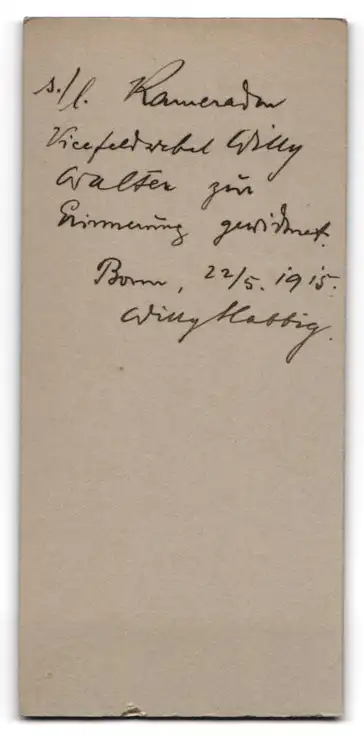 s./l. Kameraden
Vicefeldwebel Willy
Walter zur
Erinnerung gewidmet.
Bonn, 22/5. 1915.
Willy Habbig.